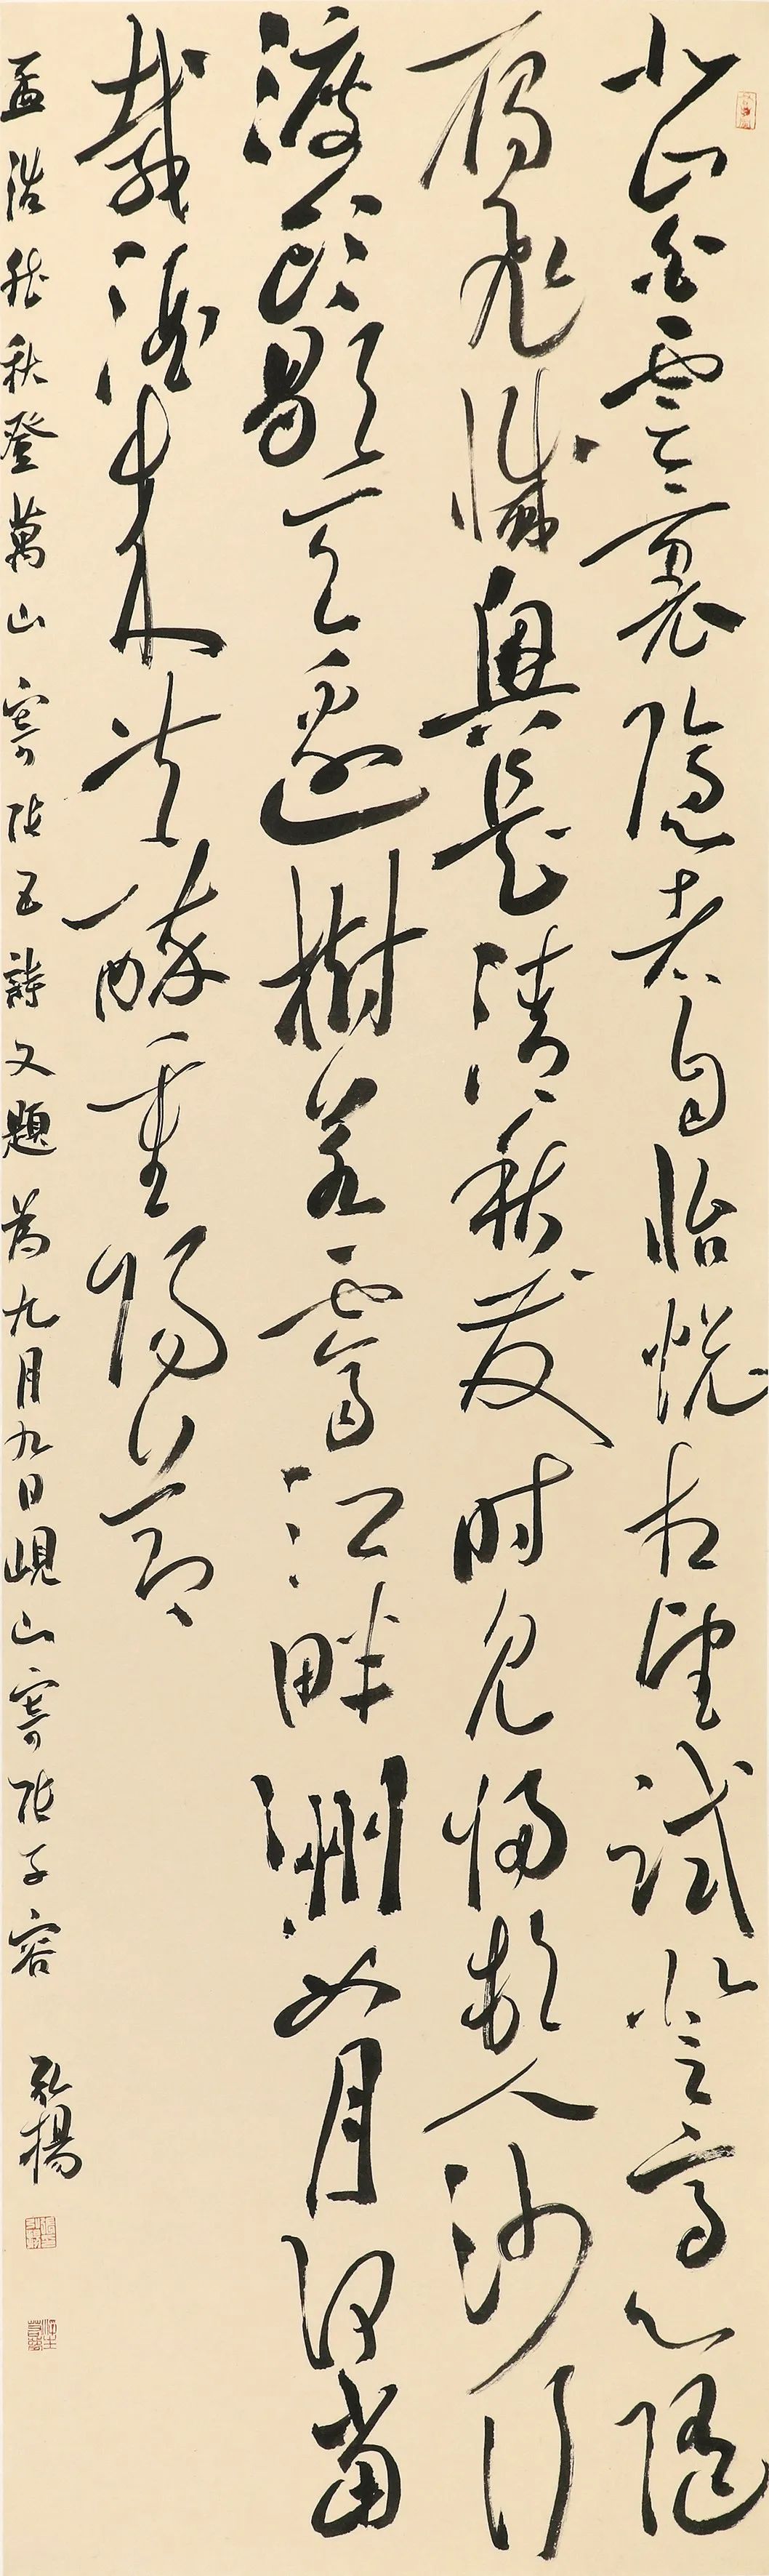 北山白雲裏隱者自怡悅相望試登高心隨
雁飛滅興是清秋發時見歸村人沙行
渡頭歇天邊樹若薺江畔洲如月何當
載酒來共醉重陽節
孟浩然秋登萬山寄張五詩又題為九月九日峴山寄張子容 弘揚